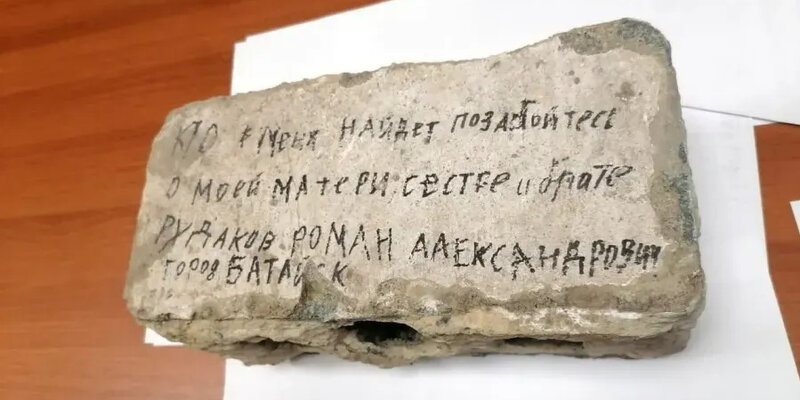 КТО меня НАЙДЕТ ПОЗАБОЙТЕСЬ
О МОЕЙ МАТЕРИ. СЕСТРЕ и брате
РУДАКОВ РОМАН АЛЕКСАНДРОВИЧ
ГОРОВ БАТАЙСК